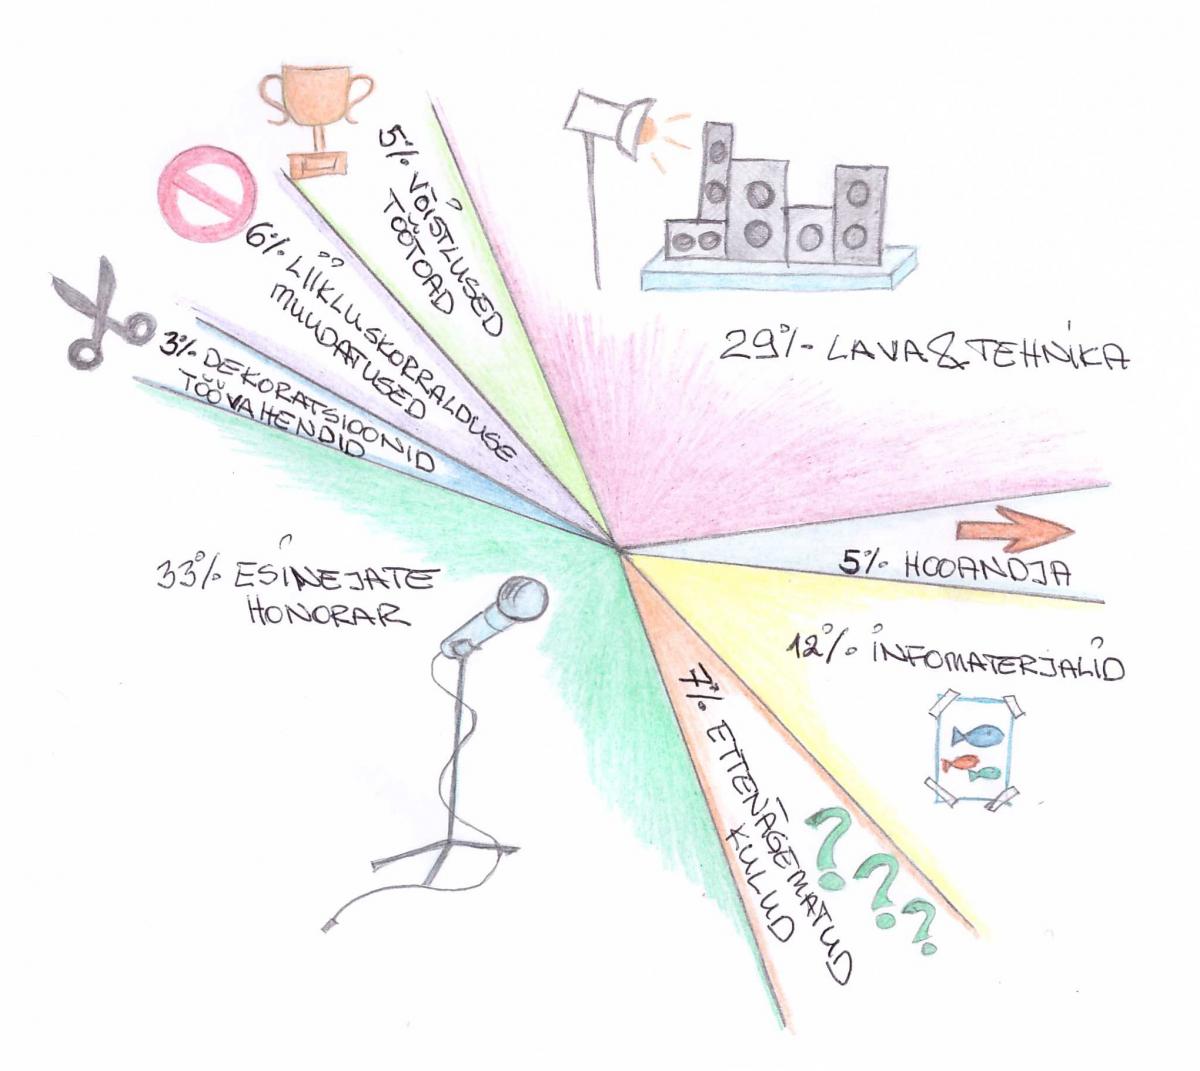 5% VÕISTLUSED
TÖÖTOAD
6% LIIKLUSKORRALDUSE
MUUDATUSED
3% DEKORATSIOONID
TÖÖVAHENDID
29% LAVA & TEHNIKA
5% HOOANDJA
33% ESINEJATE
HONORAR
12% INFOMATERJALID
7% ETTENÄGEMATUD
KULUD
???